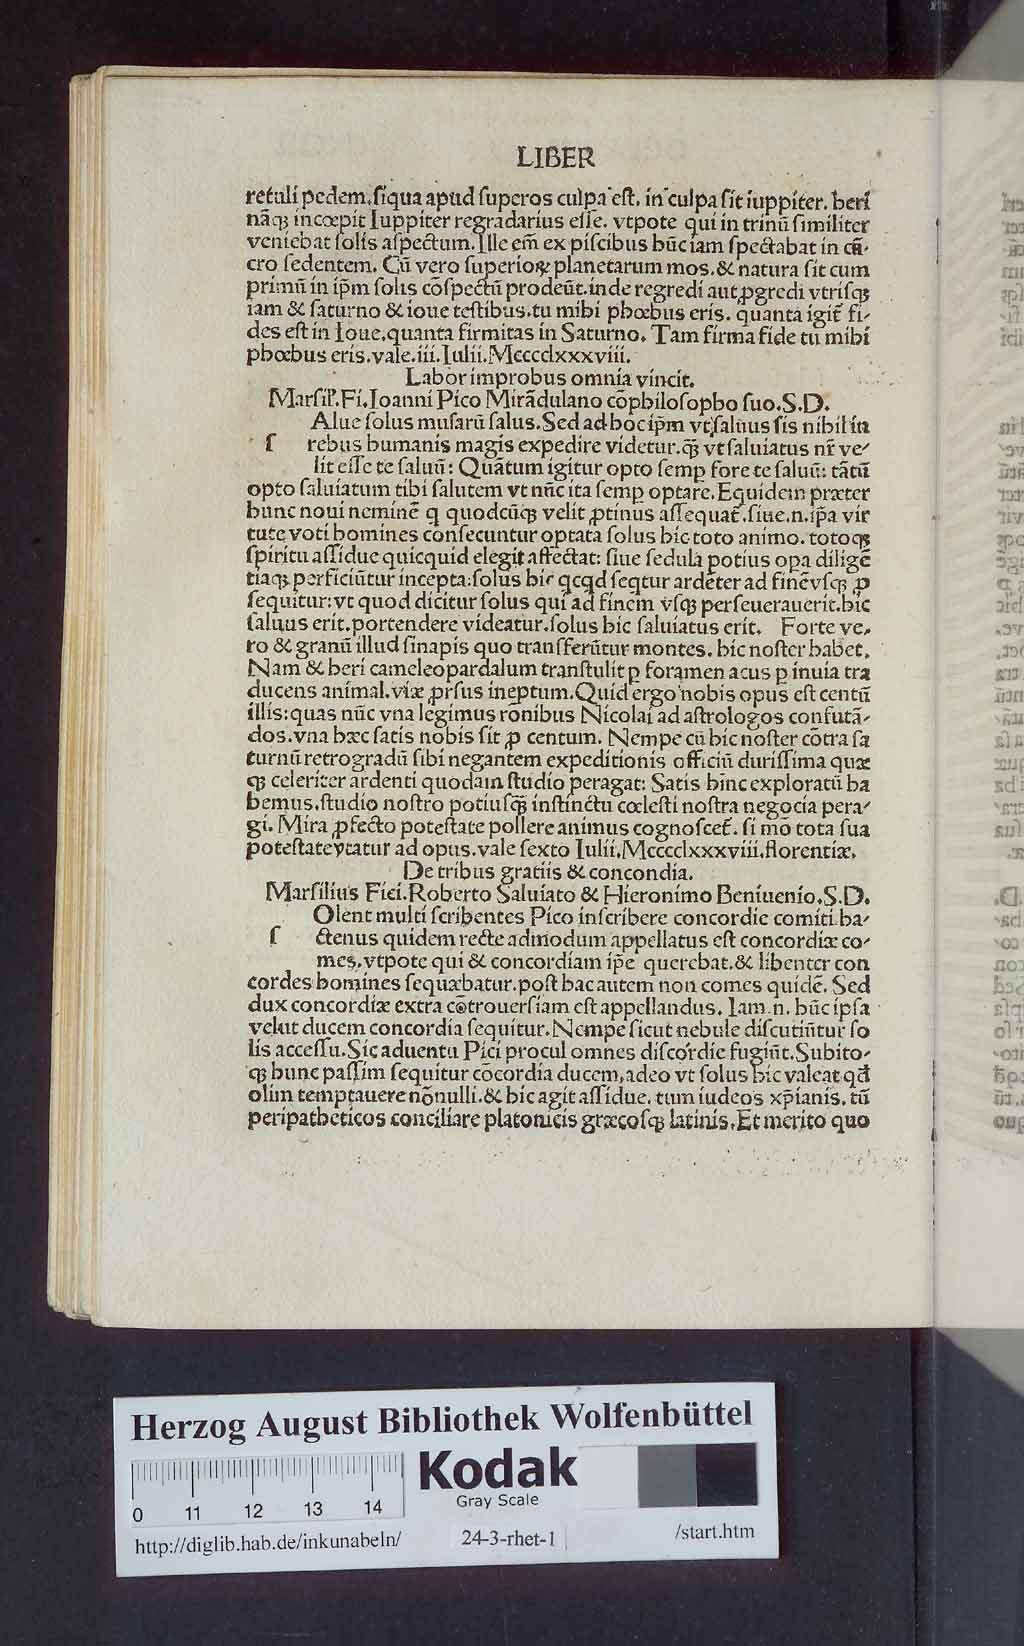 LIBER
retuli pedem. siqua apud superos culpa est, in culpa sit iuppiter. heri
nāqꝫ incœpit Iuppiter regradarius esse. vtpote qui in trinū similiter
veniebat solis aspectum. Ille em̄ ex piscibus hūc iam spectabat in cā-
cro sedentem. Cū vero superioꝝ planetarum mos. & natura sit cum
primū in ip̄m solis cōspectū prodeūt. inde regredi aut ꝓgredi vtrisqꝫ
iam & saturno & ioue testibus. tu mihi phœbus eris. quanta igit̄ fi-
des est in Ioue, quanta firmitas in Saturno. Tam firma fide tu mihi
phœbus eris. vale. iii. Iulii. Mcccclxxxviii.
Labor improbus omnia vincit.
Marsil'. Fi. Ioanni Pico Mirādulano cōphilosopho suo. S. D.
Alue solus musarū salus. Sed ad hoc ip̄m vt saluus sis nihil in
s rebus humanis magis expedire videtur. qꝫ̄ vt saluiatus nr̄ ve-
lit esse te saluū: Quātum igitur opto semꝑ fore te saluū: tātū
opto saluiatum tibi salutem vt nūc ita semꝑ optare. Equidem præter
hunc noui neminē q quodcūqꝫ velit ꝓtinus assequat̄. siue. n. ip̄a vir
tute voti homines consecuntur optata solus hic toto animo. totoqꝫ
spiritu assidue quicquid elegit affectat: siue sedula potius opa diligē
tiaqꝫ perficiūtur incepta: solus hic qcqd seqtur ardēter ad finē vsqꝫ ꝑ
sequitur: vt quod dicitur solus qui ad finem vsqꝫ perseuerauerit. hic
saluus erit. portendere videatur. solus hic saluiatus erit. Forte ve-
ro & granū illud sinapis quo transferūtur montes. hic noster habet.
Nam & heri cameleopardalum transtulit ꝑ foramen acus ꝑ inuia tra
ducens animal. viæ ꝓrsus ineptum. Quid ergo nobis opus est centū
illis: quas nūc vna legimus rōnibus Nicolai ad astrologos confutā-
dos. vna hæc satis nobis sit ꝓ centum. Nempe cū hic noster cōtra sa
turnū retrogradū sibi negantem expeditionis officiū durissima quæ
qꝫ celeriter ardenti quodam studio peragat: Satis hinc exploratū ha
bemus. studio nostro potiusqꝫ̄ instinctu cœlesti nostra negocia pera-
gi. Mira ꝓfecto potestate pollere animus cognoscet̄. si mō tota sua
potestate vtatur ad opus. vale sexto Iulii. Mcccclxxxviii. florentiæ.
De tribus gratiis & concondia.
Marsilius Fici. Roberto Saluiato & Hieronimo Beniuenio. S. D.
Olent multi scribentes Pico inscribere concordie comiti. ha-
s ctenus quidem recte admodum appellatus est concordiæ co-
mes. vtpote qui & concordiam ip̄e querebat. & libenter con
cordes homines sequæbatur. post hac autem non comes quidē. Sed
dux concordiæ extra cōtrouersiam est appellandus. Iam. n. hūc ipsa
velut ducem concordia sequitur. Nempe sicut nebule discutiūtur so
lis accessu. Sic aduentu Pici procul omnes discordie fugiūt. Subito-
qꝫ hunc passim sequitur cōcordia ducem, adeo vt solus hic valeat qd̄
olim temptauere nōnulli. & hic agit assidue. tum iudeos xp̄ianis. tū
peripatheticos conciliare platonicis græcosqꝫ latinis. Et merito quo
Herzog August Bibliothek Wolfenbüttel
Kodak
Gray Scale
0 11 12 13 14
http://diglib.hab.de/inkunabeln/ 24-3-rhet-1 /start.htm